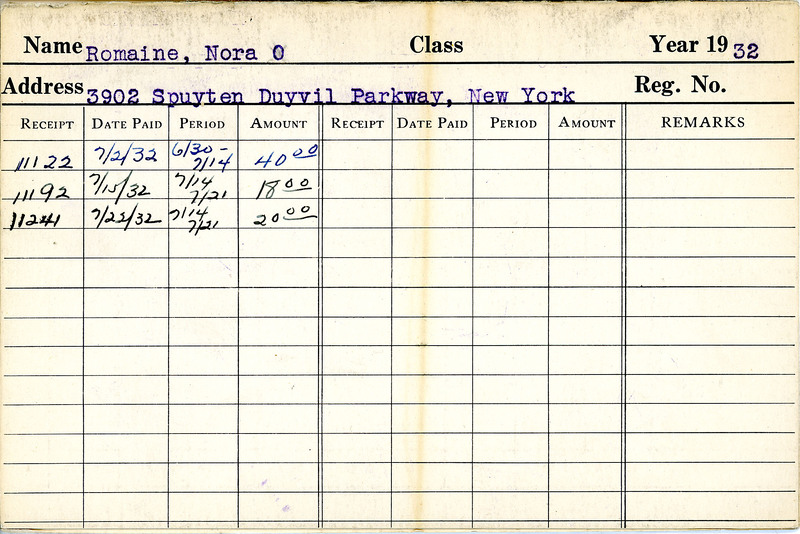 Name Romaine, Nora O Class Year 19 32
Address 3902 Spuyten Duyvil Parkway, New York Reg. No.
RECEIPT DATE PAID PERIOD AMOUNT RECEIPT DATE PAID PERIOD AMOUNT REMARKS
11122 7/2/32 6/30 - 7/14 40 00
11192 7/15/32 7/14 7/21 18 00
11241 7/22/32 7/14 7/21 20 00